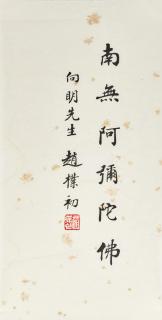 南無阿彌陀佛
向明先生
趙樸初